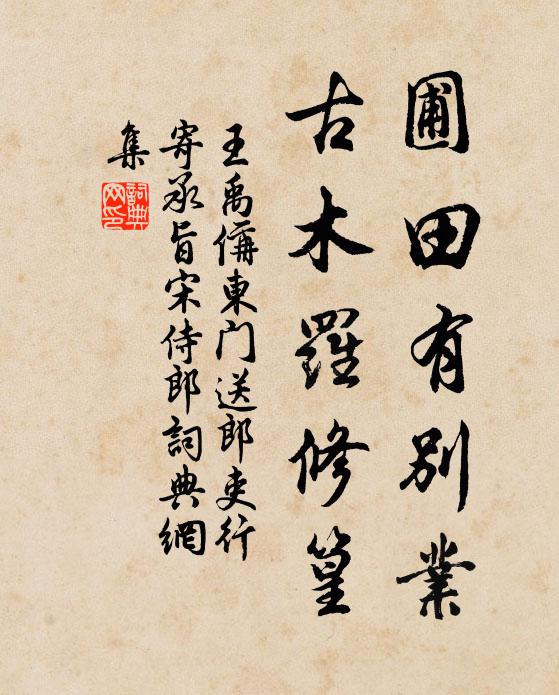 圃田有別業
古木羅修篁
王禹偁東门送郎吏行
寄承旨宋侍郎詞典網
集
詞典网印